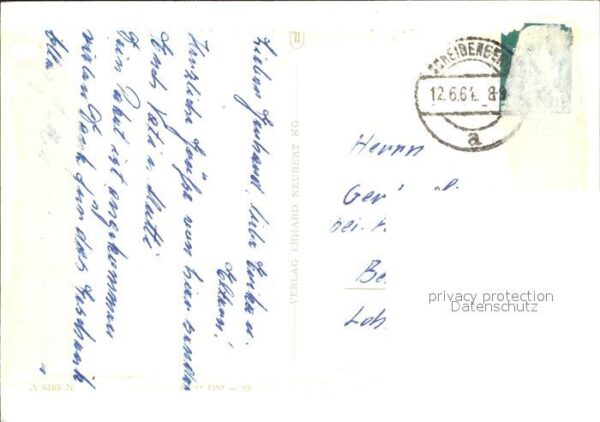 Lieber Gerhard, liebe Gerda u.
Eltern!
Herzliche Grüße von hier senden
Euch Vati u. Mutti
Dein Paket ist angekommen
vielen Dank für das Geschenk
VERLAG ERHARD NEUBERT KG
SCHEIBENBERG
12.6.61 8-9
a
Herrn
Ge
bei
Be
Loh
privacy protection
Datenschutz
A 6183 N